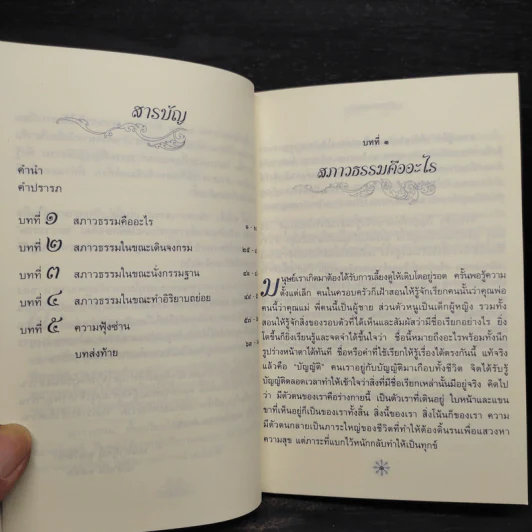 สารบัญ
คำนำ
คำปรารภ
บทที่ ๑ สภาวธรรมคืออะไร
บทที่ ๒ สภาวธรรมในขณะเดินจงกรม
บทที่ ๓ สภาวธรรมในขณะนั่งกรรมฐาน
บทที่ ๔ สภาวธรรมในขณะทำอิริยาบถย่อย
บทที่ ๕ ความฟุ้งซ่าน
บทส่งท้าย
บทที่ ๑
สภาวธรรมคืออะไร
มนุษย์เราเกิดมาต้องได้รับการเลี้ยงดูให้เติบโตอยู่รอด ครั้นพอรู้ความ
ตั้งแต่เล็ก คนในครอบครัวก็เฝ้าสอนให้รู้จักเรียกคนนั้นว่าคุณพ่อ
คนนี้ว่าคุณแม่ พี่คนนี้เป็นผู้ชาย ส่วนตัวหนูเป็นเด็กผู้หญิง รวมทั้ง
สอนให้รู้จักสิ่งของรอบตัวที่ได้เห็นและสัมผัสว่ามีชื่อเรียกอย่างไร ยิ่ง
โตขึ้นก็ยิ่งเรียนรู้และจดจำได้ขึ้นใจว่า ชื่อนี้หมายถึงอะไรพร้อมทั้งนึก
รูปร่างหน้าตาได้ทันที ชื่อหรือคำที่ใช้เรียกให้รู้เรื่องได้ตรงกันนี้ แท้จริง
แล้วคือ "บัญญัติ" คนเราอยู่กับบัญญัติมาเกือบทั้งชีวิต จิตได้รับรู้
บัญญัติตลอดเวลาทำให้เข้าใจว่าสิ่งที่มีชื่อเรียกเหล่านั้นมีอยู่จริง คิดไป
ว่า มีตัวตนของเราคือร่างกายนี้ เป็นตัวเราที่เดินอยู่ ใบหน้าและแขน
ขาที่เห็นอยู่ก็เป็นของเราทั้งสิ้น สิ่งนี้ของเรา สิ่งโน้นก็ของเรา ความ
มีตัวตนกลายเป็นภาระใหญ่ของชีวิตที่ทำให้ต้องดิ้นรนเพื่อแสวงหา
ความสุข แต่ภาระที่แบกไว้หนักกลับทำให้เป็นทุกข์